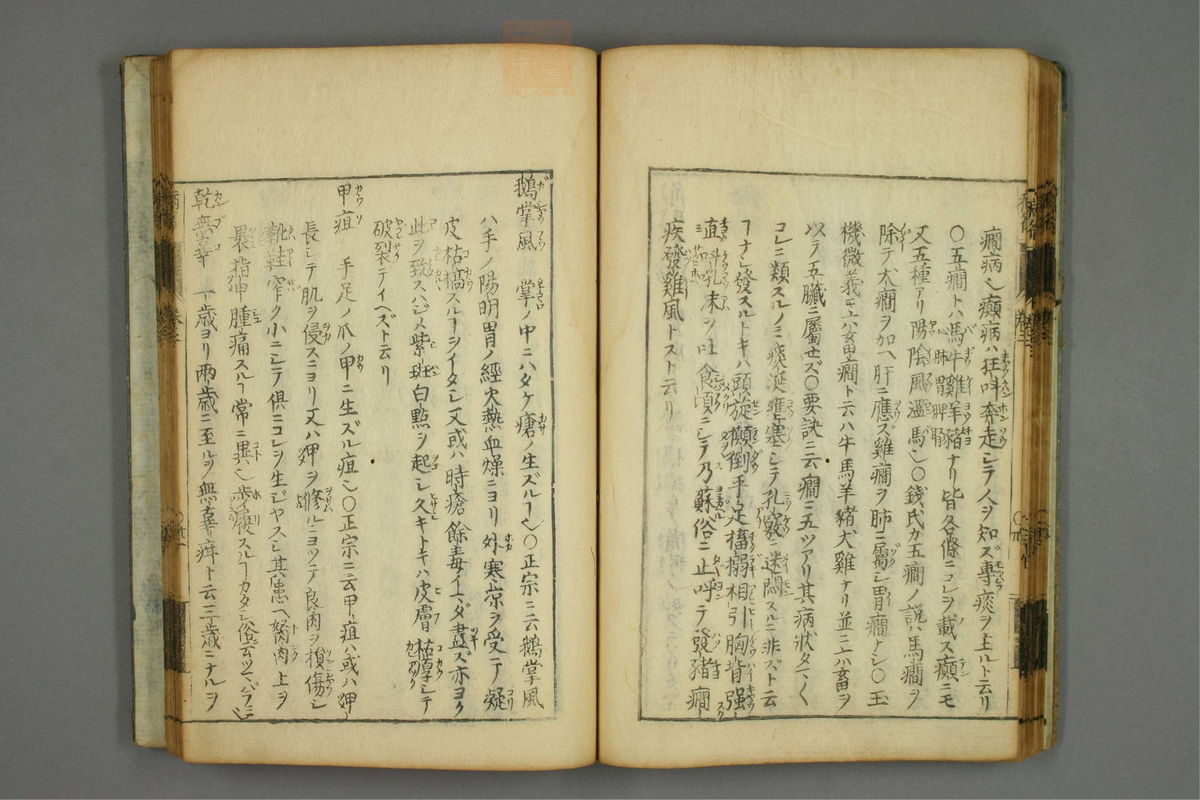 癇病ヽ癲病ハ狂呌奔走シテ人ヲ知ズ專痰ヲ上ルト云リ
○五癇トハ馬牛雞羊豬ナリ皆各條ニコレヲ載ス癲ニモ
又五種アリ陽陰風濕馬ヽ○錢氏カ五癇ノ説ハ馬癇ヲ
除テ犬癇ヲ加ヘ肝ニ應ズ雞癇ヲ肺ニ屬シ胃癇ナシ○玉
機微義ニハ畜癇ト云ハ牛馬羊豬犬雞ナリ並ニハ畜ヲ
以テ五臟ニ屬せズ○要訣ニ云癇ニ五ツアリ其病狀タヾ
コレニ類スルノミ痰涎壅塞シテ孔竅ニ迷悶スルニ非ズト云
フナシ發スルトキハ頭旋顚倒手足搐搦相引胸背强
直呌 沫ヲ吐食頃ニシテ乃蘇俗ニ止呼テ發豬癇
疾發雞風トスト云リ
鵝掌風 掌ノ中ニハタケ瘡ノ生ズルヿヽ○正宗ニ云鵝掌風
ハ手ノ陽明胃ノ經火熱血燥ニヨリ外寒涼ヲ受ニテ凝
皮枯槁スルヿヲイタシ又或ハ時瘡餘毒イマダ盡ズ亦ヨク
此ヲ致スハジメ紫斑白點ヲ起シ久キトキハ皮膚枯厚シテ
破裂テイヘズト云リ
甲疽 手足ノ爪ノ甲ニ生ズル疽ヽ○正宗ニ云甲疽ハ或ハ甲
長シテ肌ヲ侵スニヨリ又ハ甲ヲ修ルニヨツテ良肉ヲ損傷シ
靴鞋窄ク小ニシテ俱ニコレヲ生ジヤスシ其患ヘ努肉上ヲ
裹指甲腫痛スルヿ常ニ異ヽ歩履スルヿカタシ俗云ツマバラミ
乾無辜 一歳ヨリ兩歳ニ至ルヲ無辜疳ト云三歳ニナルヲ